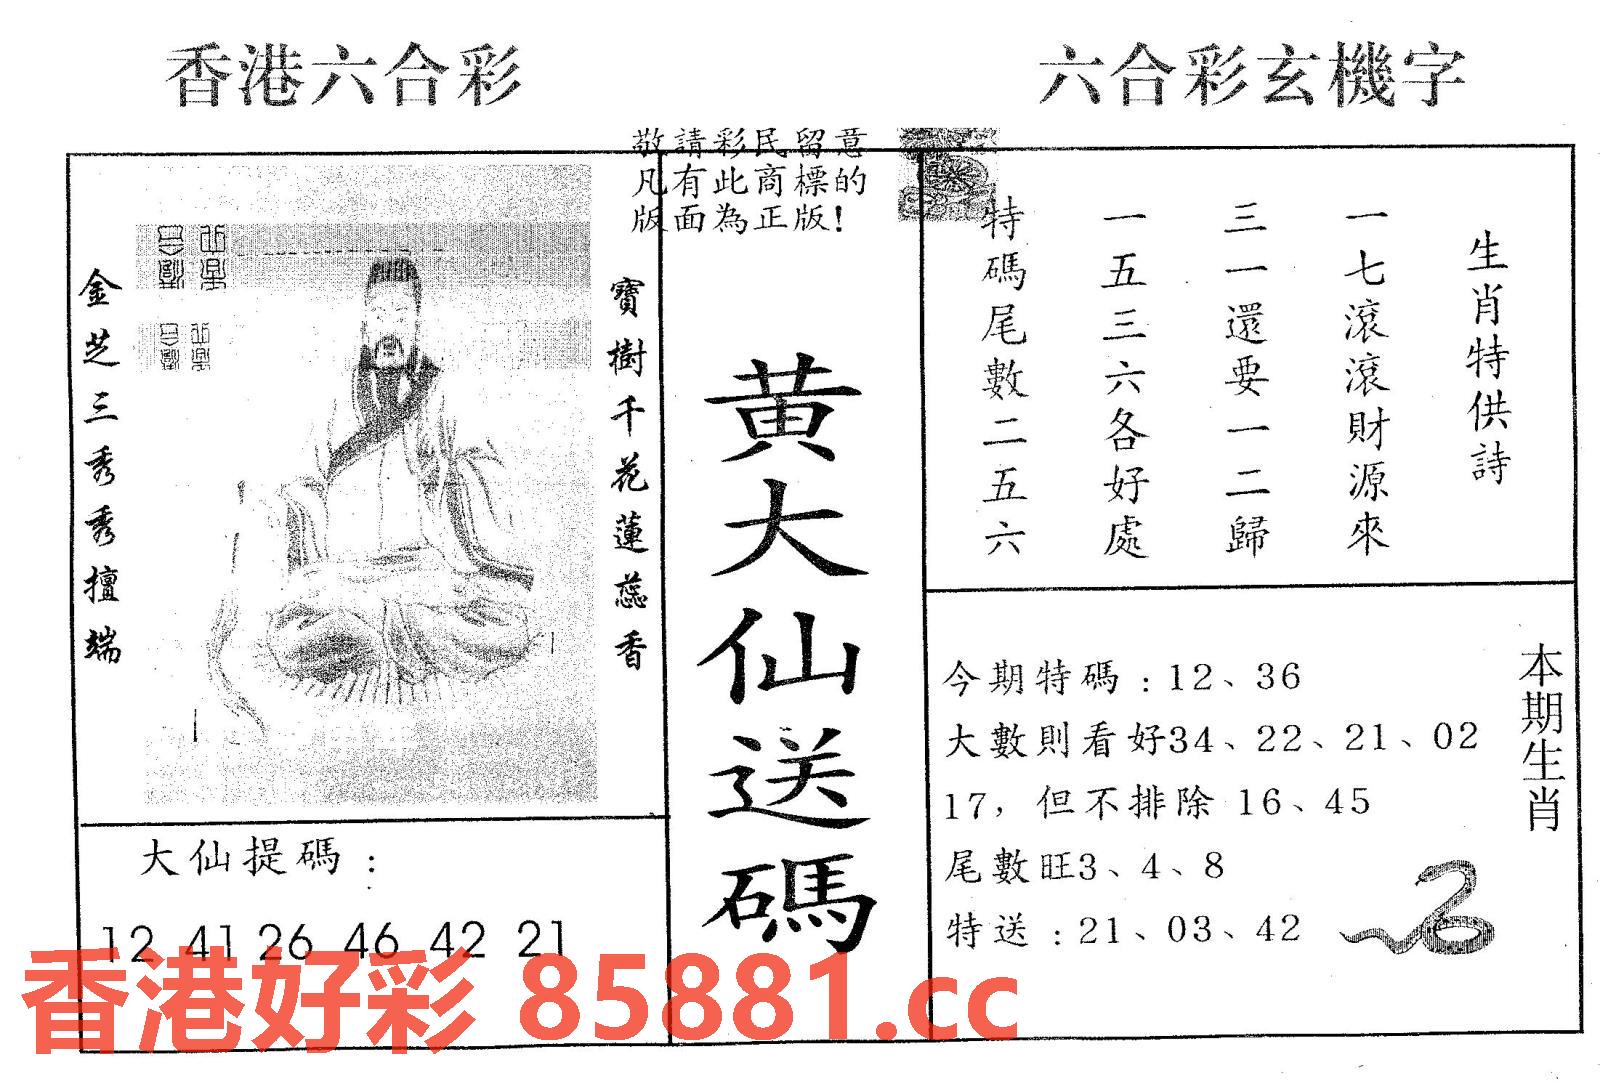 香港六合彩
六合彩玄機字
敬請彩民留意
凡有此商標的
版面為正版!
金芝三秀秀擅端
寶樹千花蓮蕊香
黄大仙送碼
生肖特供詩
一七滾滾財源來
三一還要一二歸
一五三六各好處
特碼尾數二五六
大仙提碼：
12 41 26 46 42 21
今期特碼：12、36
大數則看好34、22、21、02
17，但不排除 16、45
尾數旺3、4、8
特送：21、03、42
本期生肖
香港好彩 85881.cc